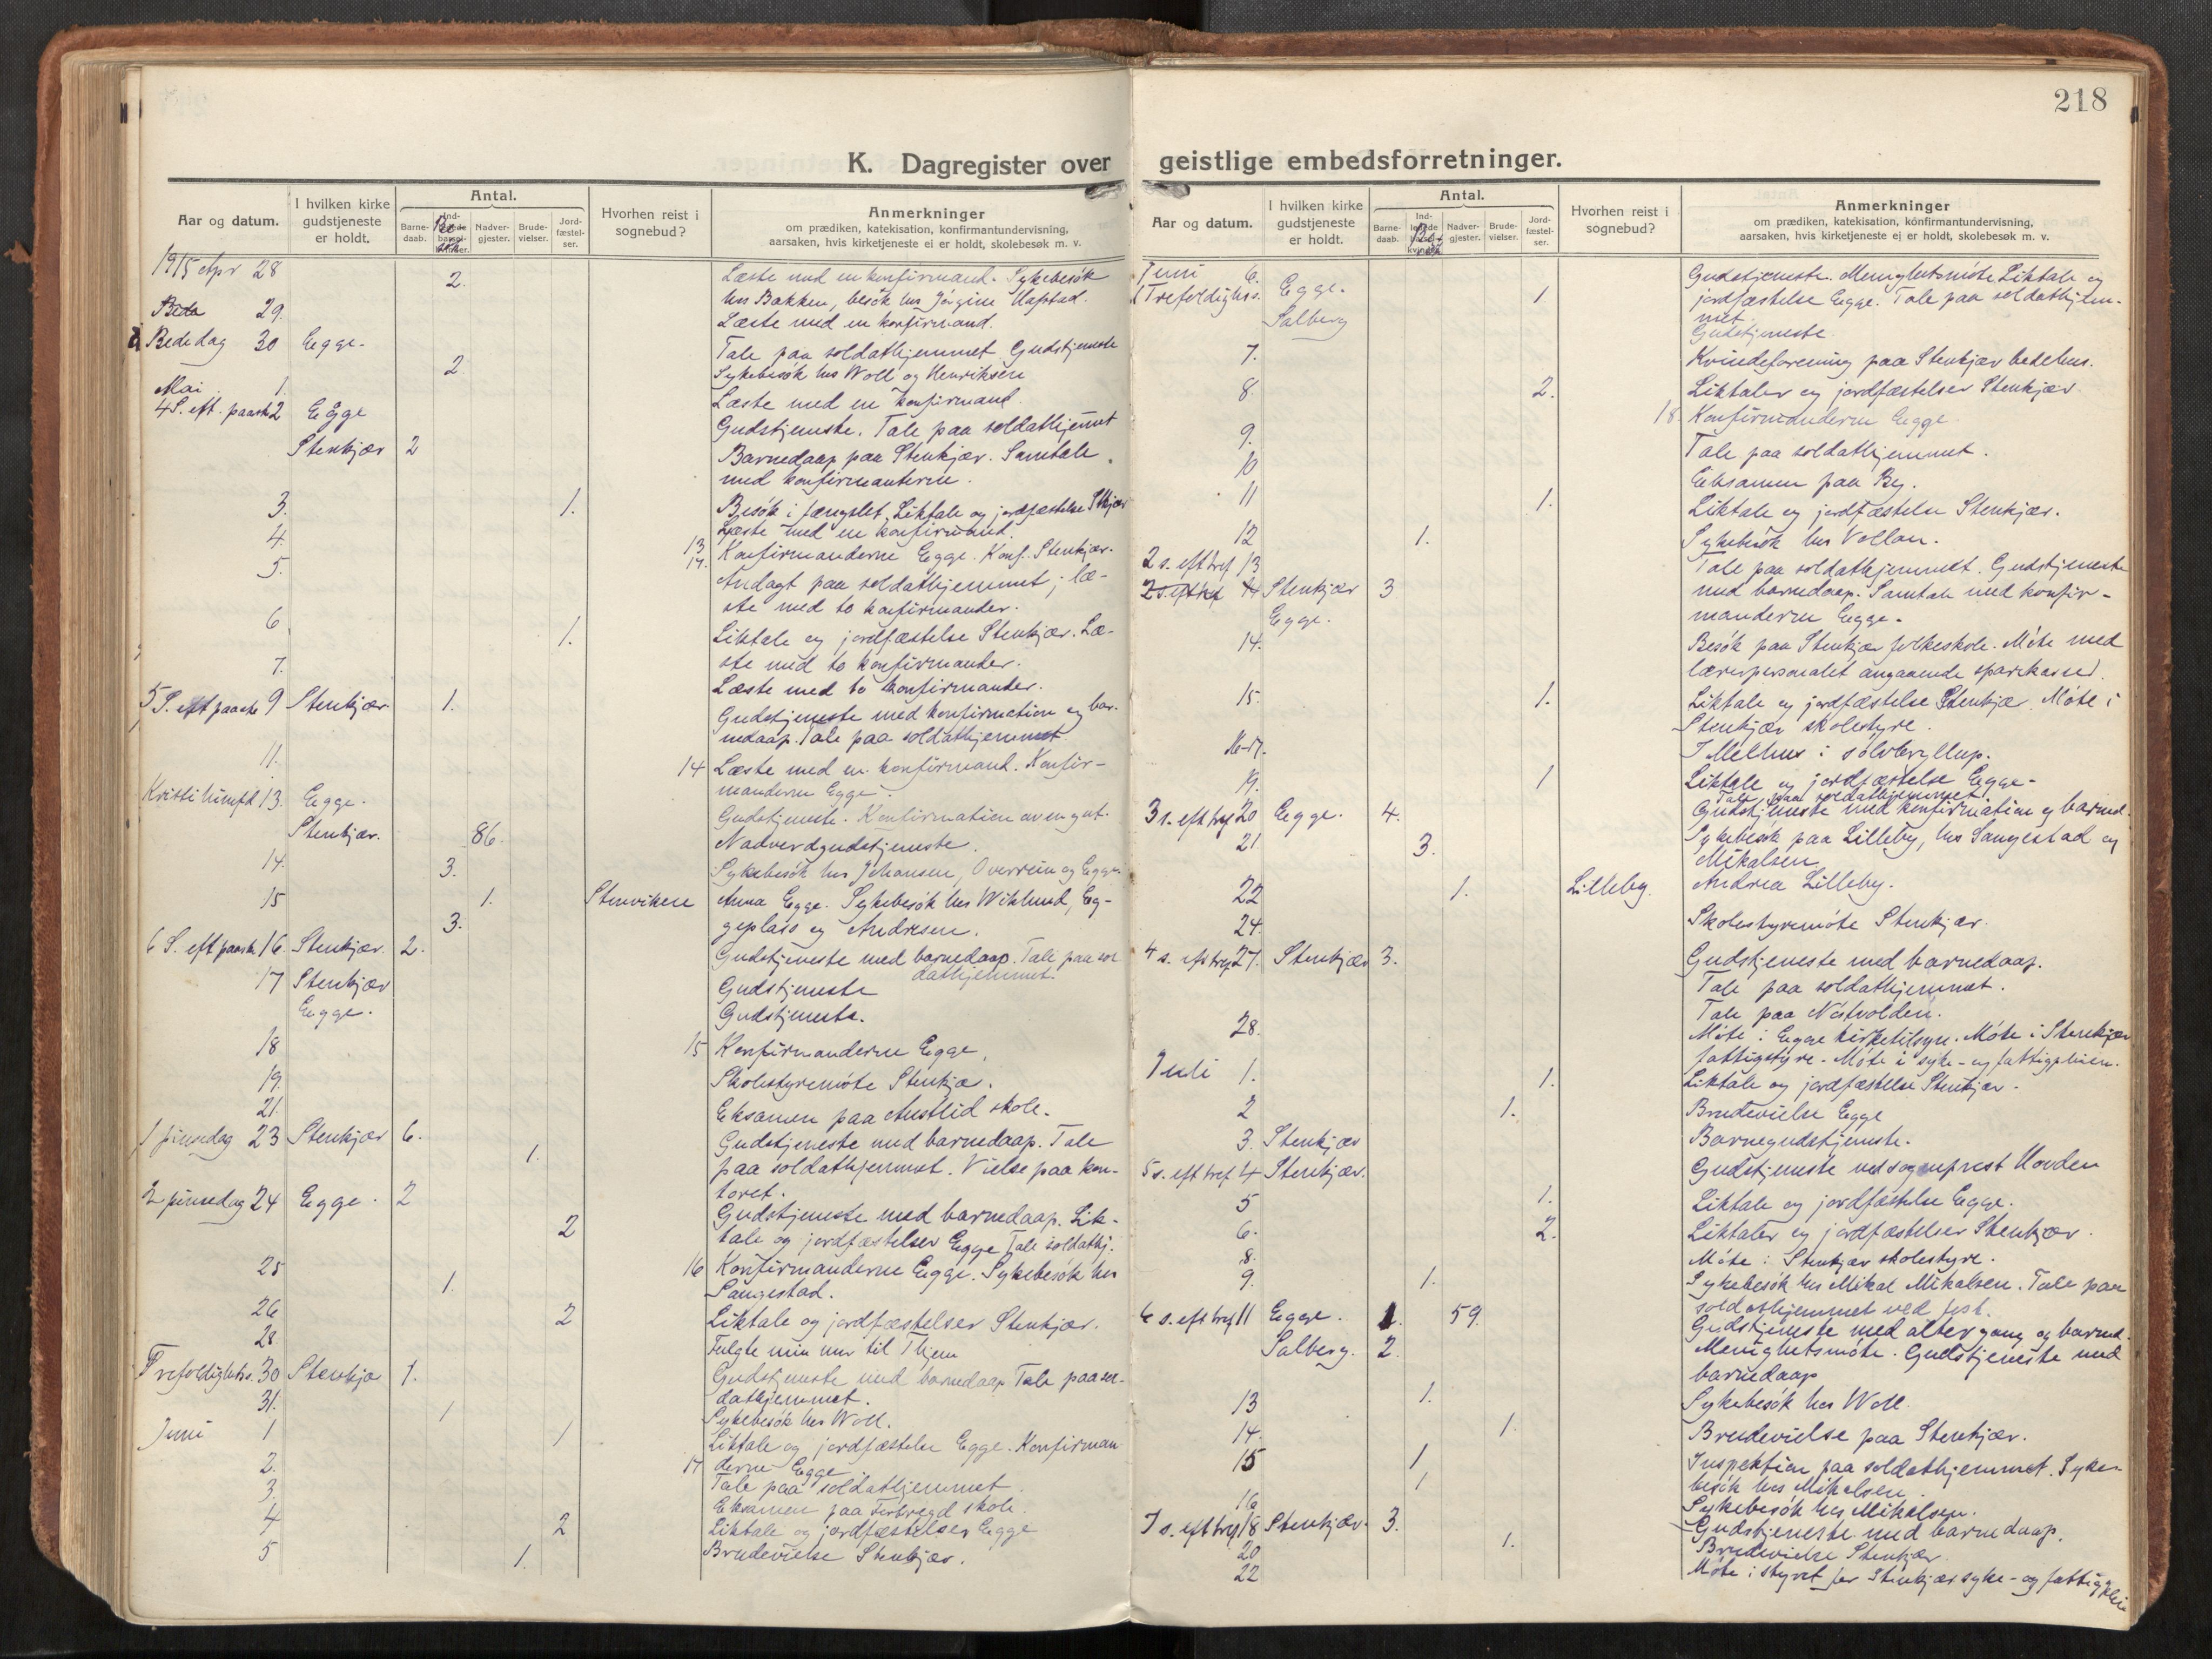 218
K. Dagregister over geistlige embedsforretninger.
Aar og datum. I hvilken kirke gudstjeneste er holdt. Antal. Barne-daab. Nadver-gjester. Brude-vielser. Jord-fæstel-ser. Hvorhen reist i sognebud? Anmerkninger om prædiken, katekisation, konfirmantundervisning, aarsaken, hvis kirketjeneste ei er holdt, skolebesøk m. v.
1915 Apr 28 2. Læste med en konfirmand. Sykebesök
hos Bakken, besök hos Jörgine Hafstad.
29. Læste med en konfirmand.
Bededag 30 Egge.
Tale paa soldathjemmet Gudstjeneste
2. Sykebesök hos Woll og Henriksen
Mai 1. Læste med en konfirmand.
4 S. eft. paaske 2 Egge Gudstjeneste. Tale paa soldathjemmet
Stenkjær 2 Barnedaap paa Stenkjær. Samtale
med konfirmanterne.
3. 1. Besök i fængslet. Liktale og jordfæstelse Stkjær
Læste med en konfirmand.
4. 13 Konfirmanderne Egge. Konf. Stenkjær.
5. 14. Andagt paa soldathjemmet; læ-
ste med to konfirmander.
6 1. Liktale og jordfæstelse Stenkjær. Læ-
ste med to konfirmander.
7. Læste med to konfirmander.
5 S. eft paaske 9 Stenkjær 1. Gudstjeneste med konfirmation og bar-
nedaap. Tale paa soldathjemmet
11. 14 Læste med en konfirmand. Konfir-
manderne Egge.
Kristi himfd. 13. Egge. Gudstjeneste. Konfirmation av en gut.
Stenkjær. 86. Nadverdgudstjeneste.
14. 3. Sykebesök hos Johansen, Overrein og Egge.
15 1. Stenviken Anna Egge. Sykebesök hos Wiklund, Eg-
3. geplass og Andresen.
6 S. eft paaske 16. Stenkjær. 2. Gudstjeneste med barnedaap. Tale paa sol
dathjemmet
17 Stenkjær Gudstjeneste
Egge. Gudstjeneste.
18 15 Konfirmanderne Egge.
19. Skolestyremöte Stenkjær.
21. Eksamen paa Austlid skole.
1 pinsedag 23 Stenkjær 6. Gudstjeneste med barnedaap. Tale
1. paa soldathjemmet. Vielse paa kon-
toret.
2 pinsedag 24 Egge. 2 Gudstjeneste med barnedaap. Lik-
2 tale og jordfæstelser Egge Tale soldathj.
25 16 Konfirmanderne Egge. Sykebesök hos
1. Langestad.
26 2 Liktale og jordfæstelser Stenkjær.
28 Fulgte min mor til Thjem
Trefoldighets. 30 Stenkjær 1. Gudstjeneste med barnedaap Tale paa sol-
dathjemmet.
31. 1 Sykebesök hos Woll.
Juni 1 1 Liktale og jordfæstelse Egge. Konfirman
17 derne Egge
2. Tale paa soldathjemmet.
3. Eksamen paa Forbregd skole.
4 2 Liktale og jordfæstelser Egge
5 1. Brudevielse Stenkjær.
Aar og datum. I hvilken kirke gudstjeneste er holdt. Antal. Barne-daab. Nadver-gjester. Brude-vielser. Jord-fæstel-ser. Hvorhen reist i sognebud? Anmerkninger om prædiken, katekisation, konfirmantundervisning, aarsaken, hvis kirketjeneste ei er holdt, skolebesøk m. v.
Juni 6. Gudstjeneste. Menighetsmöte Liktale og
1 Trefoldighets. Egge. 1. jordfæstelse Egge. Tale paa soldathjem-
met.
Salberg Gudstjeneste
7. Kvindeforening paa Stenkjær bedehus.
8. 2. Liktaler og jordfæstelser Stenkjær.
18 Konfirmanderne Egge
9. Tale paa soldathjemmet.
10 Eksamen paa By.
11 1. Liktale og jordfæstelse Stenkjær.
12 1. Sykebesök hos Vollan.
2 s. eft tref 13 Tale paa soldathjemmet. Gudstjeneste
2 s. eft tref Stenkjær 3 med barnedaap. Samtale med konfir-
Egge. manderne Egge.
14. Besök paa Stenkjær folkeskole. Möte med
lærerpersonalet angaaende sparekasse.
15. 1. Liktale og jordfæstelse Stenkjær. Möte i
Stenkjær skolestyre.
16-17. I Melhus i sölvbryllup.
19. 1 Liktale og jordfæstelse Egge.
Tale paa soldathjemmet
3 s. eft tref 20 Egge. 4. Gudstjeneste med konfirmation og barned.
21 3. Sykebesök paa Lilleby, hos Langestad og
Mikalsen
22 1. Lilleby. Andrea Lilleby.
24. Skolestyremöte Stenkjær.
4 s. eft tref 27. Stenkjær 3. Gudstjeneste med barnedaap.
Tale paa soldathjemmet.
Tale paa Nöstvolden.
28. Möte i Egge kirketilsyn. Möte i Stenkjær
fattigstyre. Möte i syke- og fattigpleien.
Juli 1. 1. Liktale og jordfæstelse Stenkjær.
2 1. Brudevielse Egge
3. Stenkjær Barnegudstjeneste.
5 s. eft tref 4 Stenkjær. Gudstjeneste ved sogneprest Hovden
5 1. Liktale og jordfæstelse Egge.
6. 2. Liktaler og jordfæstelser Stenkjær.
8. Möte i Stenkjær skolestyre.
9. 1. Sykebesök hos Mikal Mikalsen. Tale paa
soldathjemmet ved fest.
6 s. eft tref 11 Egge. 1. 59. Gudstjeneste med altergang og barned.
Salberg. 2. Menighetsmöte. Gudstjeneste med
barnedaap
13 1. Sykebesök hos Woll.
14. 1. Brudevielse paa Stenkjær.
15 1 Inspektion paa soldathjemmet. Syke-
besök hos Mikalsen.
16 1 Sykebesök hos Mikalsen.
7 s. eft tref 18 Stenkjær. 3. Gudstjeneste med barnedaap.
20 1. Brudevielse Stenkjær
22 Möte i styret for Stenkjær syke- og fattigpleie